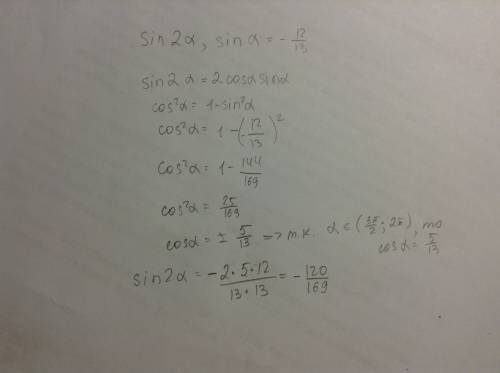 sin 2α, sin α = - 12/13
sin 2α = 2 cosα sinα
cos²α = 1 - sin²α
cos²α = 1 - (-12/13)²
cos²α = 1 - 144/169
cos²α = 25/169
cosα = ± 5/13 => т.к. α ∈ (3π/2; 2π), то
cosα = 5/13
sin 2α = - 2·5·12/13·13 = - 120/169